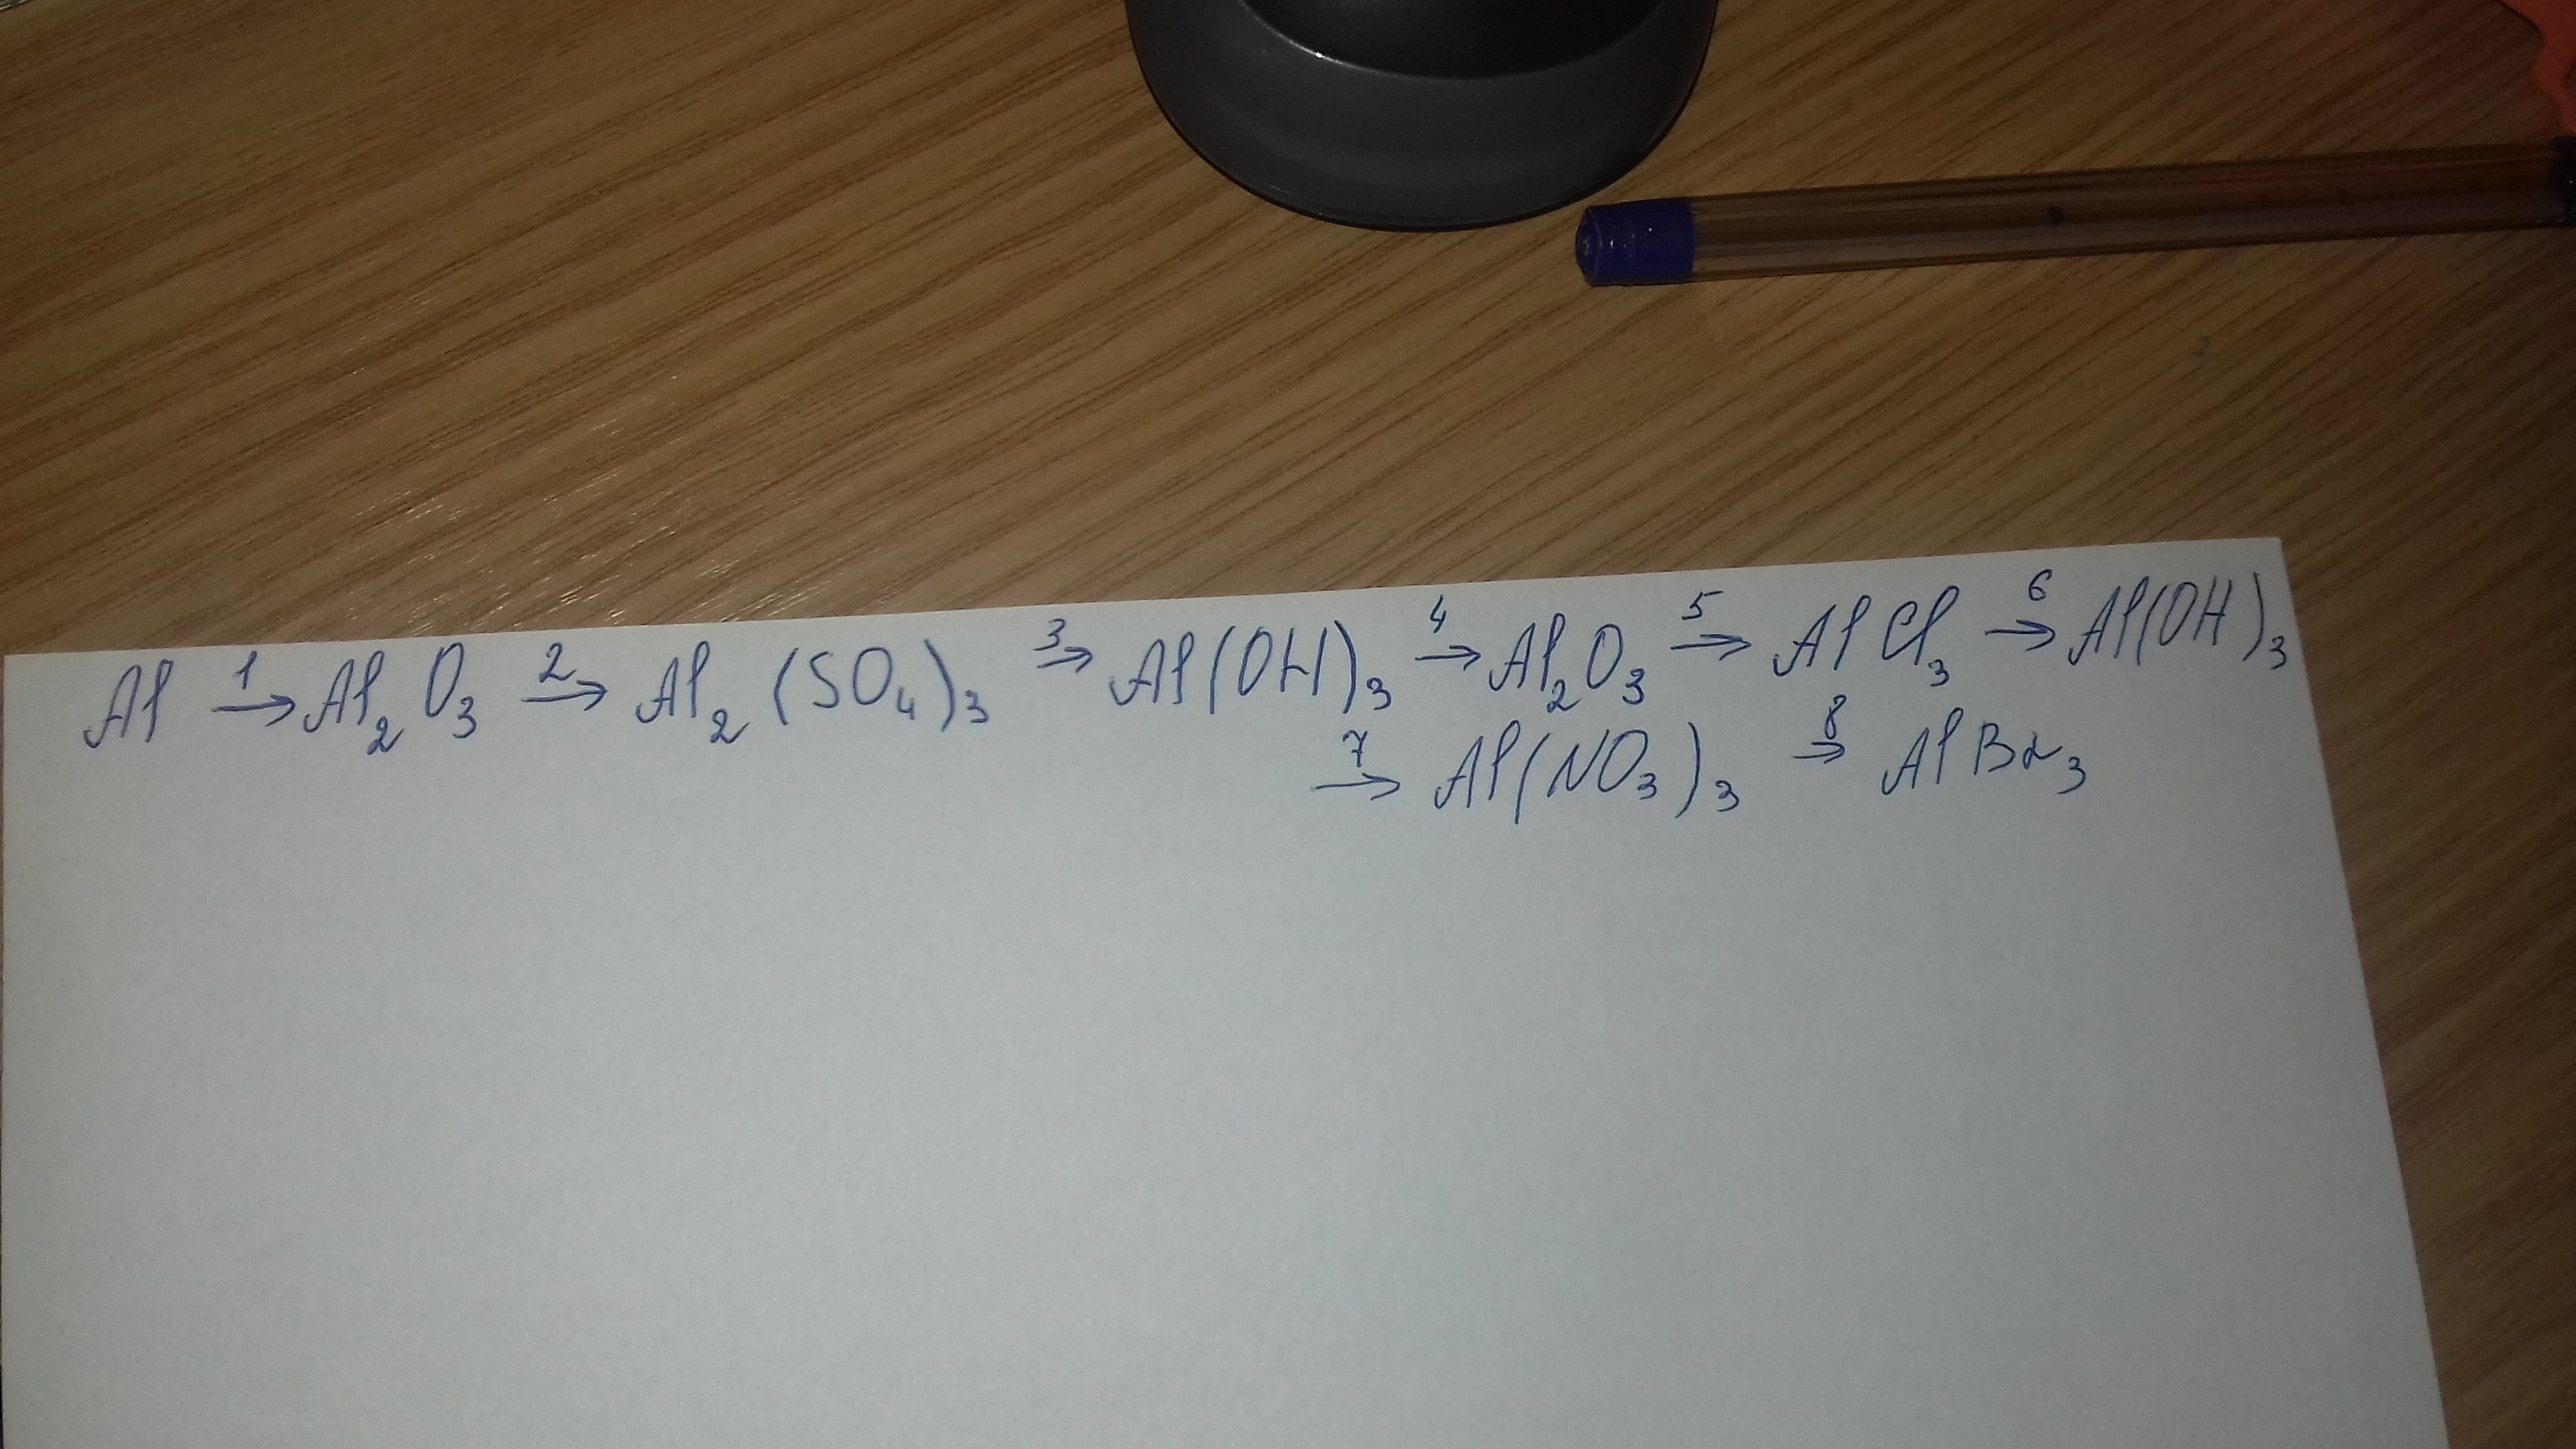 Al 1→ Al₂O₃ 2→ Al₂(SO₄)₃ 3→ Al(OH)₃ 4→ Al₂O₃ 5→ AlCl₃ 6→ Al(OH)₃
7→ Al(NO₃)₃ 8→ AlBr₃